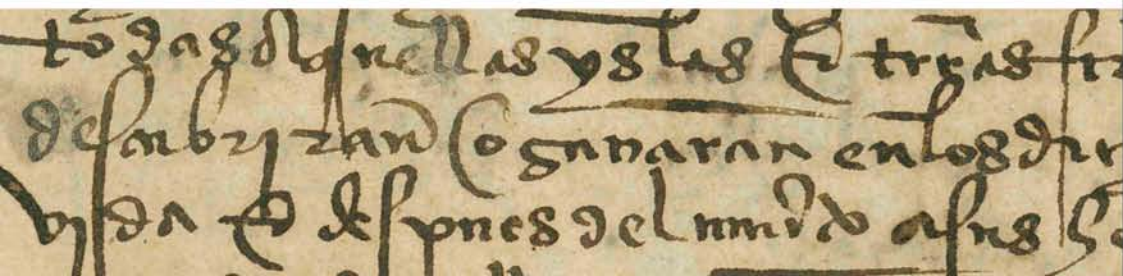 todas aquellas yslas & trras fir
descubriran o ganaran en los dic
vida & despues del muerto a sus he